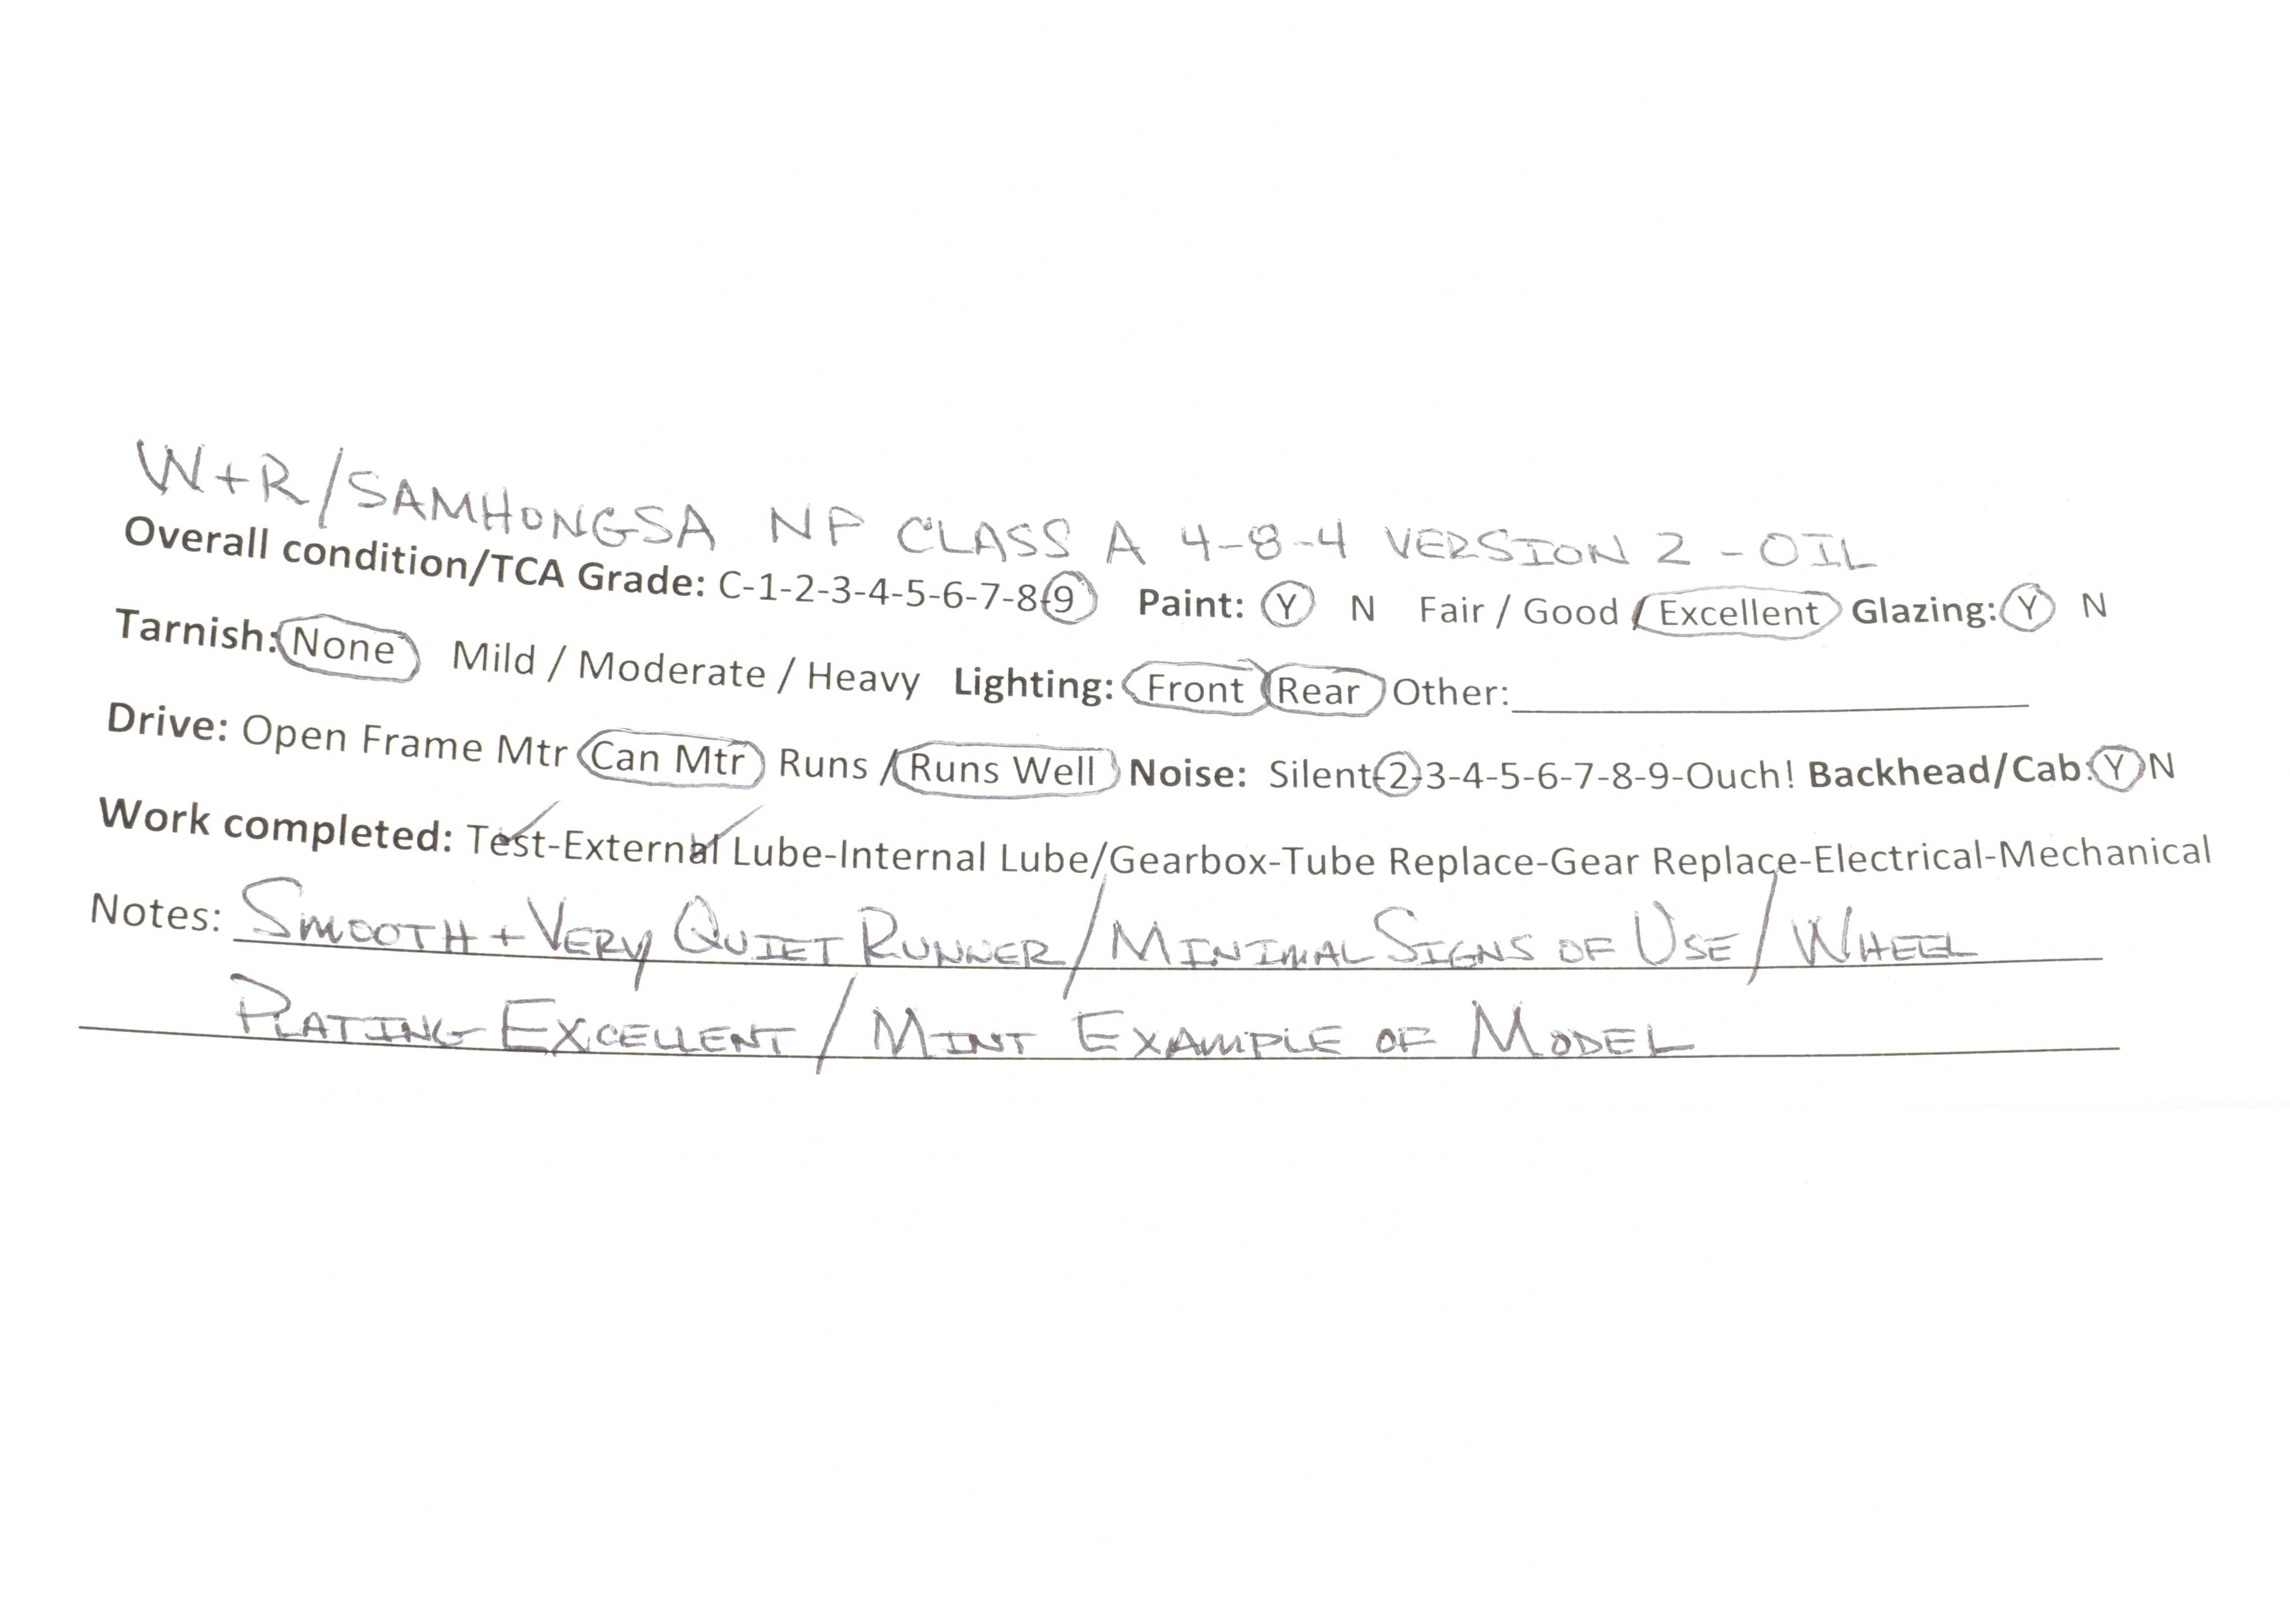 W+R/SAMHONGSA NP CLASS A 4-8-4 VERSION 2 - OIL
Overall condition/TCA Grade: C-1-2-3-4-5-6-7-8-9 Paint: Y N Fair / Good / Excellent Glazing: Y N
Tarnish: None Mild / Moderate / Heavy Lighting: Front Rear Other:
Drive: Open Frame Mtr Can Mtr Runs / Runs Well Noise: Silent-2-3-4-5-6-7-8-9-Ouch! Backhead/Cab: Y N
Work completed: Test-External Lube-Internal Lube/Gearbox-Tube Replace-Gear Replace-Electrical-Mechanical
Notes: SMOOTH + VERY QUIET RUNNER / MINIMAL SIGNS OF USE / WHEEL
PLATING EXCELLENT / MINT EXAMPLE OF MODEL